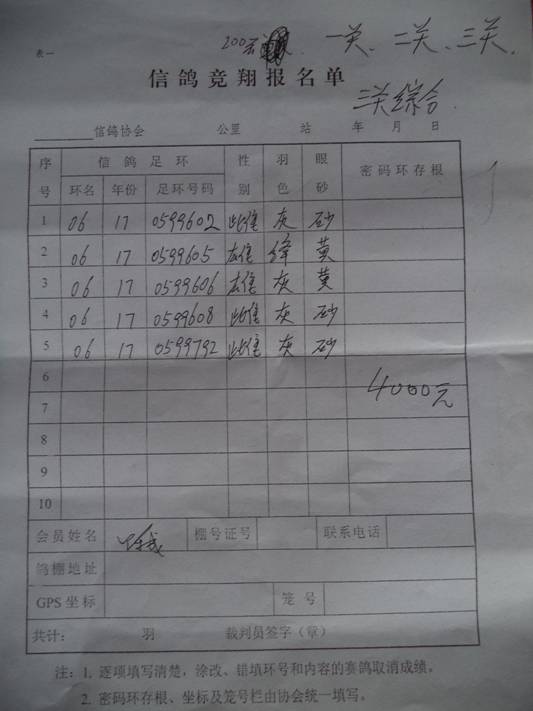 200元 一关、二关、三关.
表一
信鸽竞翔报名单
三关综合.
信鸽协会 公里 站 年 月 日
序号 信鸽足环 性别 羽色 眼砂 密码环存根
环名 年份 足环号码
1 06 17 0599602 雌 灰 砂
2 06 17 0599605 雄 绛 黄
3 06 17 0599606 雄 灰 黄
4 06 17 0599608 雌 灰 砂
5 06 17 0599792 雌 灰 砂
6
4000元
7
8
9
10
会员姓名 棚号证号 联系电话
鸽棚地址
GPS坐标 笼号
共计: 羽 裁判员签字(章)
注:1. 逐项填写清楚,涂改、错填环号和内容的赛鸽取消成绩。
2. 密码环存根、坐标及笼号栏由协会统一填写。